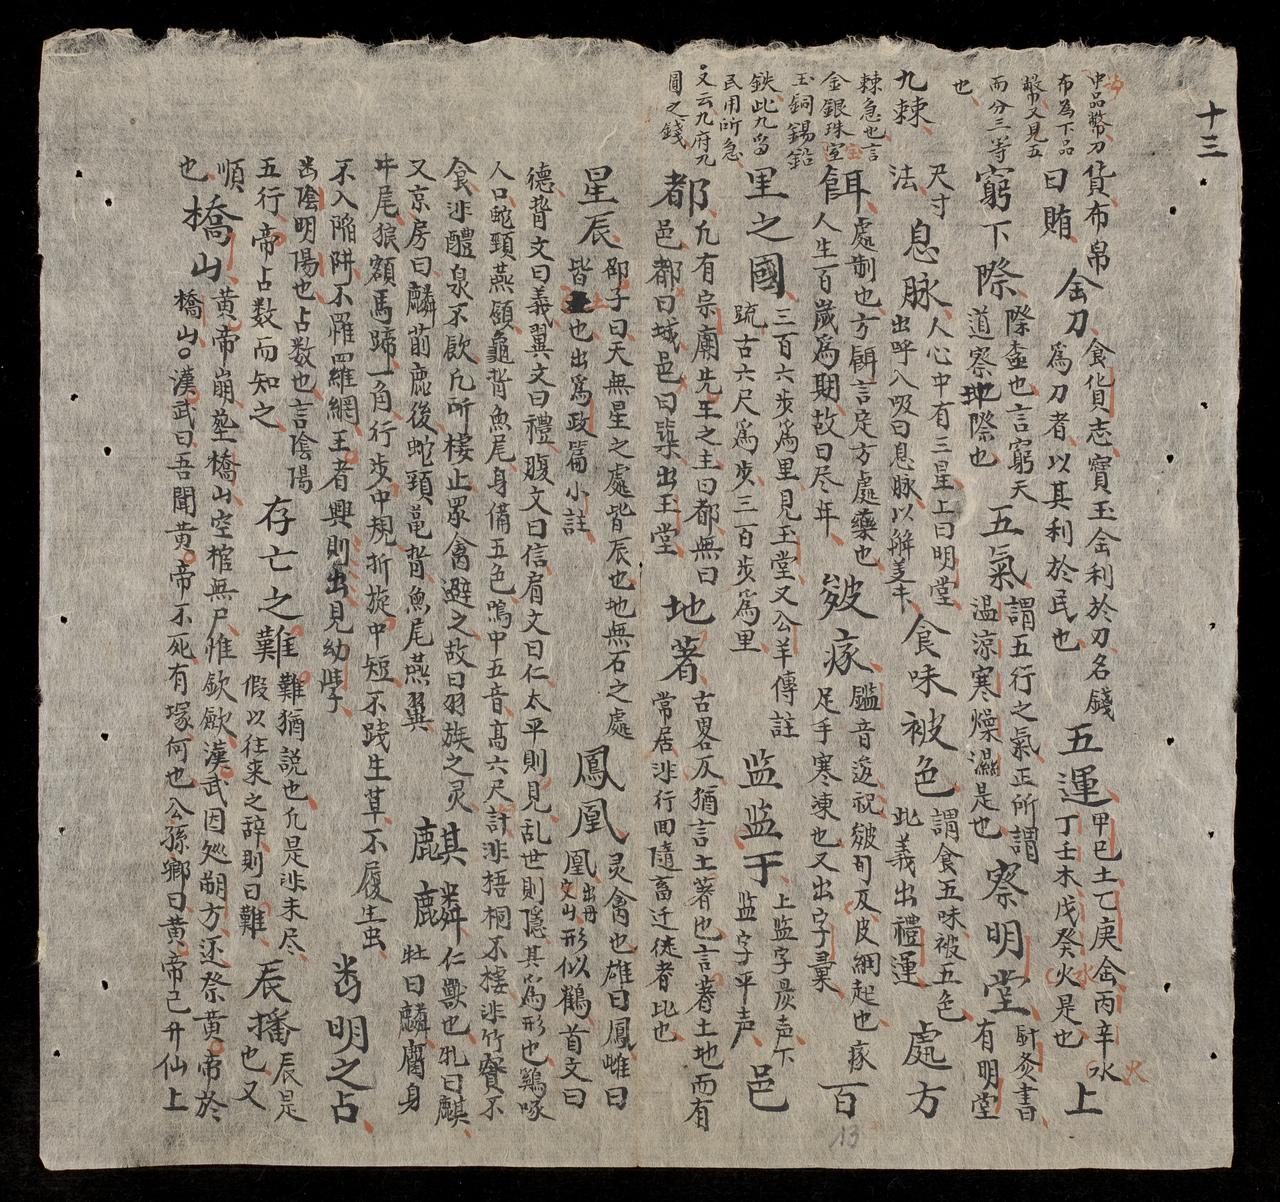 十三
中品幣刀
布為下品
幣又見五
而分三等
也
九棘
棘急也言
金銀珠宝
玉銅錫鉛
鉄此九皆
民用所急
又云九府九
圓之錢
貨布帛
曰賄
金刀
食貨志寶玉金利於刀名錢
爲刀者以其利於民也
五運
甲己土乙庚金丙辛水
丁壬木戊癸火是也
上
窮下際
際畚也言窮天
道察地際也
五氣
謂五行之氣正所謂
温涼寒燥濕是也
察明堂
針灸書
有明堂
尺寸
法
息脉
人心中有三星上曰明堂
出呼入吸曰息脉以觧
食味被色
謂食五味被五色
此義出禮運
處方
餌
處制也方餌言定方處藥也
人生百歲爲期故曰尽年
皴瘃
鑑音逡祝皴旬反皮細起也瘃
足手寒凍也又出字彙
百
里之國
三百六步爲里見玉堂又公羊傳註
疏古六尺爲步三百步爲里
监监于
上监字去声下
监字平声
邑
都
凡有宗廟先王之主曰都無曰
邑都曰城邑曰築出玉堂
地著
古畧反猶言土著也言著土地而有
常居非行囬隨畜迁徙者比也
星辰
邵子曰天無星之處皆辰也地無石之處
皆土也出爲政篇小註
鳳凰
灵禽也雄曰鳳雌曰
凰出丹穴山形似鶴首文曰
德背文曰義翼文曰禮腹文曰信肩文曰仁太平則見乱世則隱其爲形也鷄啄
人口蛇頸燕頷龜背魚尾身備五色鳴中五音高六尺許非梧桐不棲非竹實不
食非醴泉不飲凡所棲止眾禽避之故曰羽族之灵
又京房曰麟前鹿後蛇頸亀背魚尾燕翼
麒麟
仁獸也牝曰麒
牡曰麟麕身
牛尾狼額馬蹄一角行步中規折旋中短不踐生草不履生虫
不入陷阱不罹羅網王者興則出見幼學
幽明之占
幽陰明陽也占数也言陰陽
五行帝占数而知之
存亡之難
難猶説也凡是非未尽
假以往来之辞則曰難
辰播
辰是
也又
順
也
橋山
黄帝崩塟橋山空棺無尸惟欽歛漢武因廵朔方还祭黄帝於
橋山漢武曰吾聞黄帝不死有塚何也公孫卿曰黄帝已升仙上
13